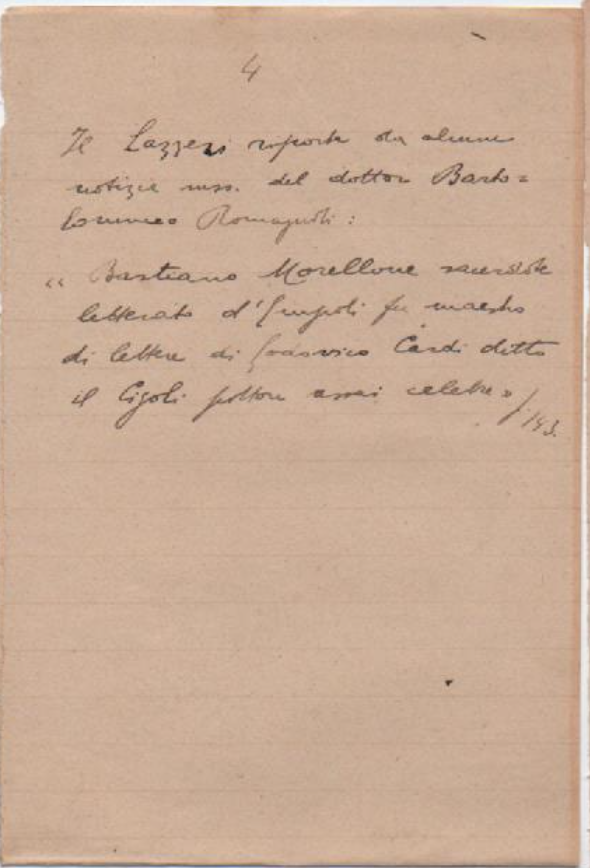 4
Il Lazzeri riporta da alcune
notizie mss. del dottor Barto=
lommeo Romagnoli:
« Bastiano Morellone sacerdote
letterato d'Empoli fu maestro
di lettere di Lodovico Cardi detto
il Cigoli pittore assai celebre »